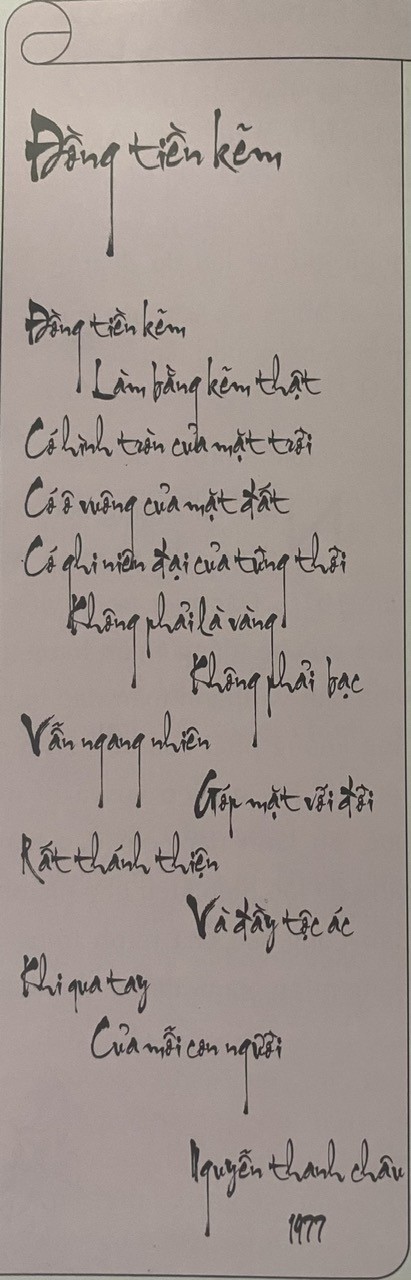 Đồng tiền kẽm
Đồng tiền kẽm
Làm bằng kẽm thật
Có hình tròn của mặt trời
Có ô vuông của mặt đất
Có ghi niên đại của từng thời
Không phải là vàng
Không phải bạc
Vẫn ngang nhiên
Góp mặt với đời
Rất thánh thiện
Và đầy tộc ác
Khi qua tay
Của mỗi con người
Nguyễn thanh châu
1977